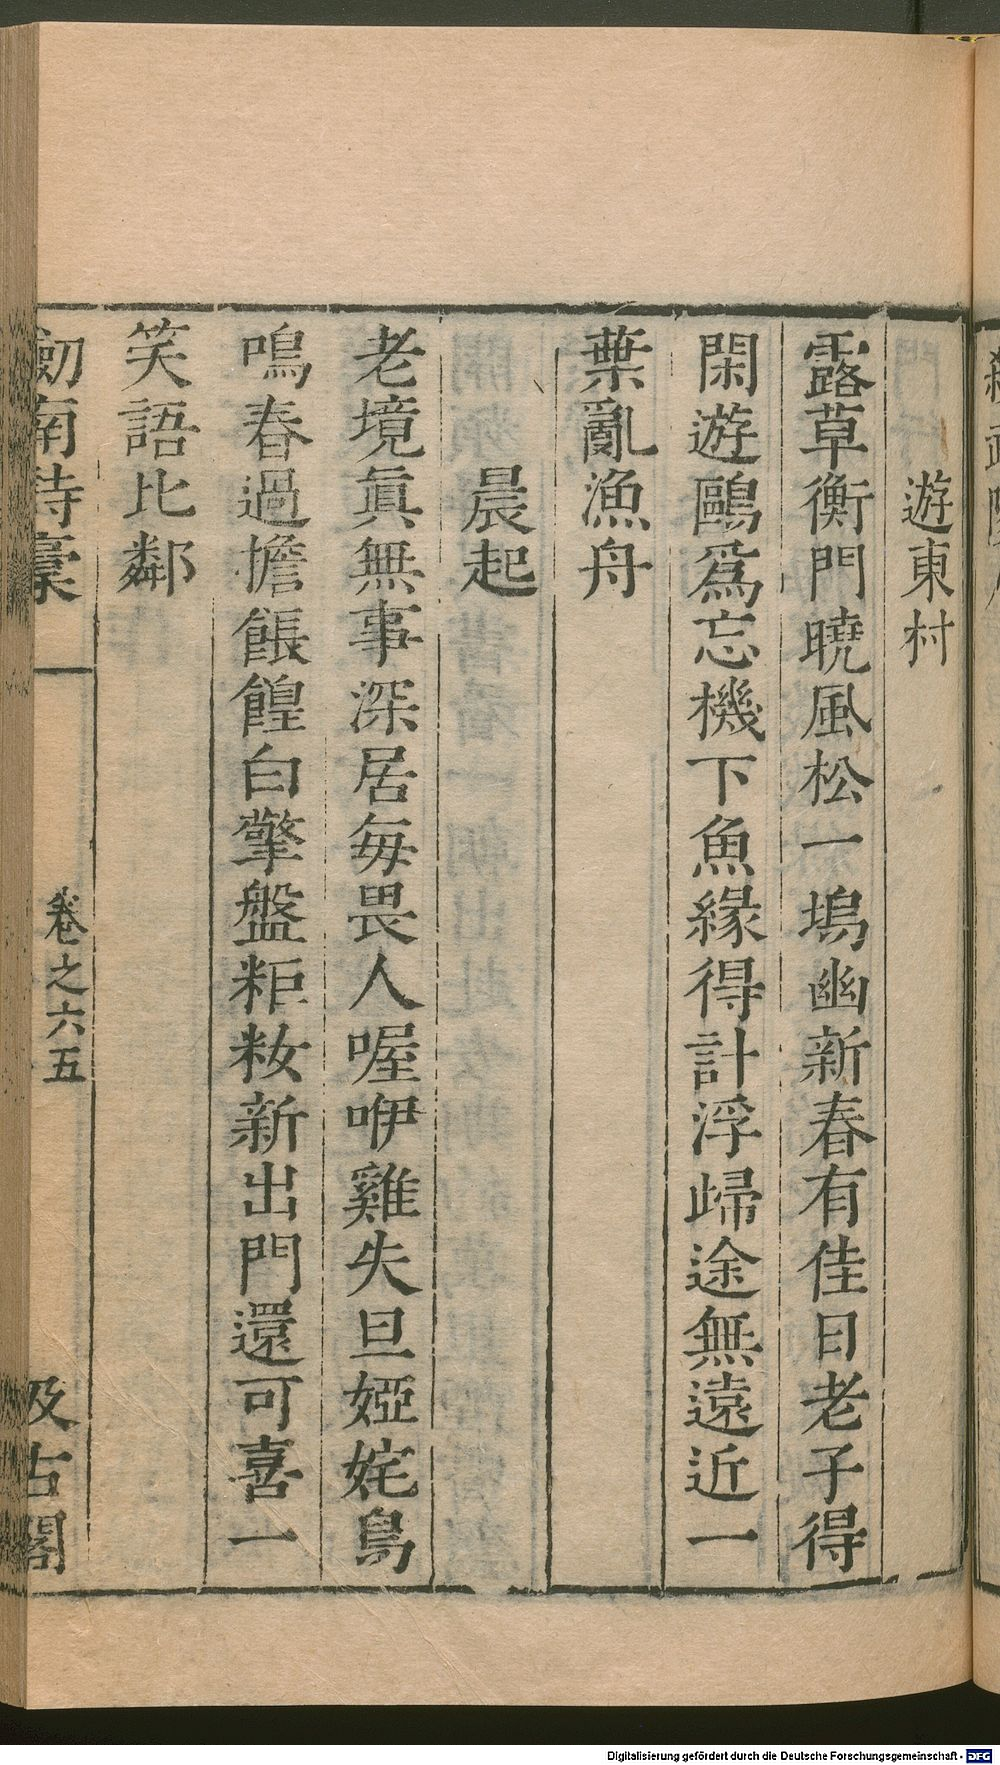 遊東村
露草衡門曉風松一塢幽新春有佳日老子得
閑遊鷗爲忘機下魚緣得計浮歸途無遠近一
葉亂漁舟
晨起
老境眞無事深居每畏人喔咿雞失旦婭姹鳥
鳴春過擔餦餭白擎盤粔籹新出門還可喜一
笑語比鄰
劎南詩稾
卷之六五
汲古閣
Digitalisierung gefördert durch die Deutsche Forschungsgemeinschaft - DFG